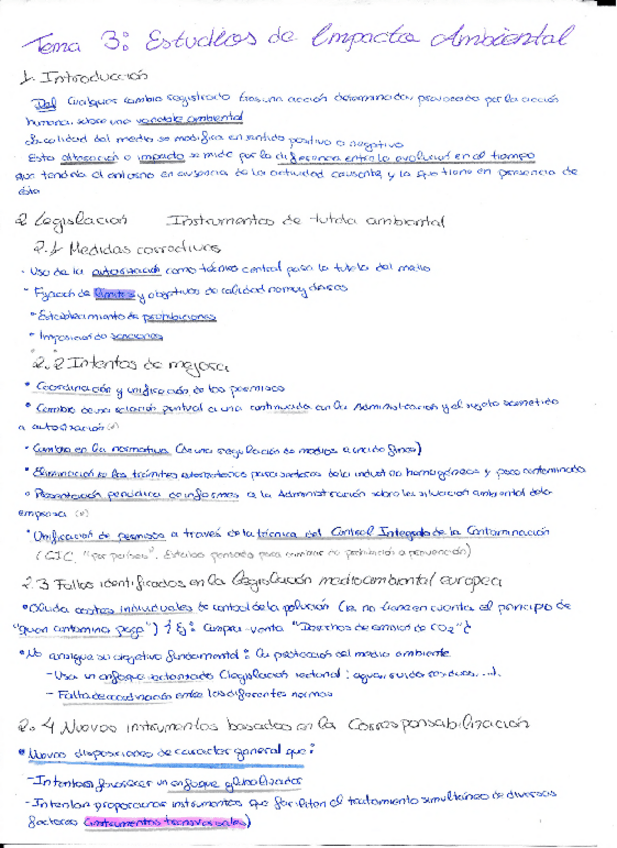 Tema 3: Estudios de Impacto Ambiental
1. Introducción
Def Cualquier cambio registrado tras una acción determinada, provocada por la acción
humana, sobre una variable ambiental
La calidad del medio se modifica en sentido positivo o negativo
Esta alteración o impacto se mide por la diferencia entre la evolución en el tiempo
que tendría el entorno en ausencia de la actividad causante, y la que tiene en presencia de
ésta
2 Legislación Instrumentos de tutela ambiental
2.1 Medidas correctivas
- Uso de la autorización como técnica central para la tutela del medio
- Fijación de límites y objetivos de calidad normy
- Establecimiento de prohibiciones
- Imposición de sanciones
2.2 Intentos de mejora
• Coordinación y unificación de los permisos
• Cambio de una relación puntual a una continuada con la Administración y el sujeto sometido
a autorización
• Cambio en la normativa (de una regulación de medios a una de fines)
• Eliminación de los trámites autorizatorios para sectores de la industria homogéneos y poco contaminado
• Presentación periódica de informes a la Administración sobre la situación ambiental de la
empresa
• Unificación de permisos a través de la técnica del Control Integrado de la Contaminación
(CIC, "por países". Estaba pensado para cambiar de prohibición a prevención)
2.3 Fallos identificados en la legislación medioambiental europea
• Olvida costes individuales de control de la polución (ie no tiene en cuenta el principio de
"quien contamina paga") Ej: Compra-venta "Derechos de emisión de CO2"
• No consigue su objetivo fundamental: la protección del medio ambiente
- Usa un enfoque sectorizado (legislación sectorial: aguas, ruido, residuos, ...).
- Falta de coordinación entre las diferentes normas
2.4 Nuevos instrumentos basados en la Corresponsabilización
• Nuevas disposiciones de caracter general que:
- Intentan favorecer un enfoque globalizador
- Intentan proporcionar instrumentos que faciliten el tratamiento simultáneo de diversos
factores (instrumentos transversales)